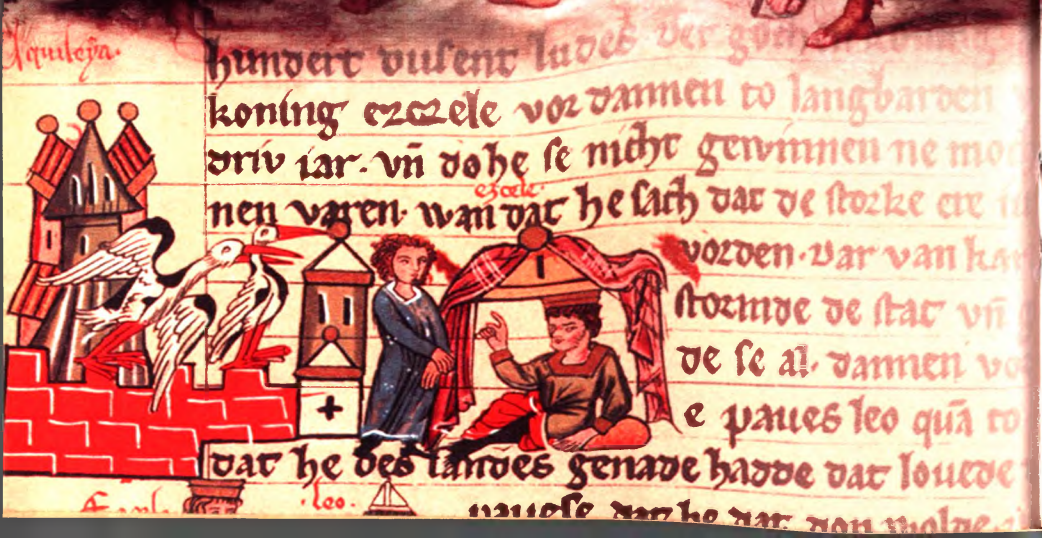 Aquileya.
hundert dusent ludes der
koning ezczele vor dannen to langbarden
driv iar. vn̄ do he se nicht gewinnen ne moc
ezcele.
nen varen. wan dat he sach dat de storke ere
worden. dar van
stormde de stat vn̄
de se al. dannen vo
e paues leo quā to
dat he des landes genade hadde dat louede
leo.
pauese dat he dat don wolde.